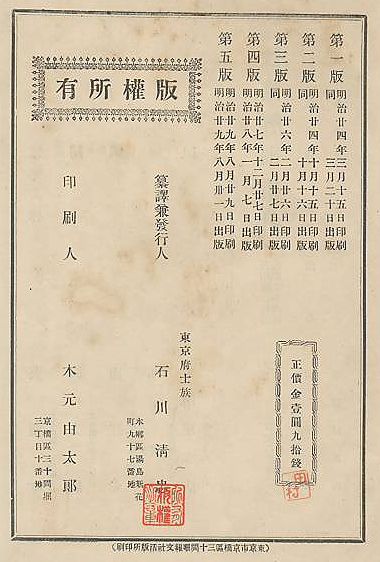 第一版 明治廿四年三月十五日印刷
同 三月二十日出版
第二版 明治廿四年十月十五日印刷
同 十月十六日出版
第三版 明治廿六年二月廿六日印刷
同 二月廿七日出版
第四版 明治廿七年十二月廿七日印刷
明治廿八年一月七日出版
第五版 明治廿九年八月廿九日印刷
明治廿九年八月卅一日出版
版權所有
正價金壹圓九拾錢
纂譯兼發行人
東京府士族
石川清忠
本鄕區湯島新花
町九十七番地
印刷人
木元由太郎
京橋區三十間堀
三丁目十番地
(東京市京橋區三十間堀報文社活版所印刷)